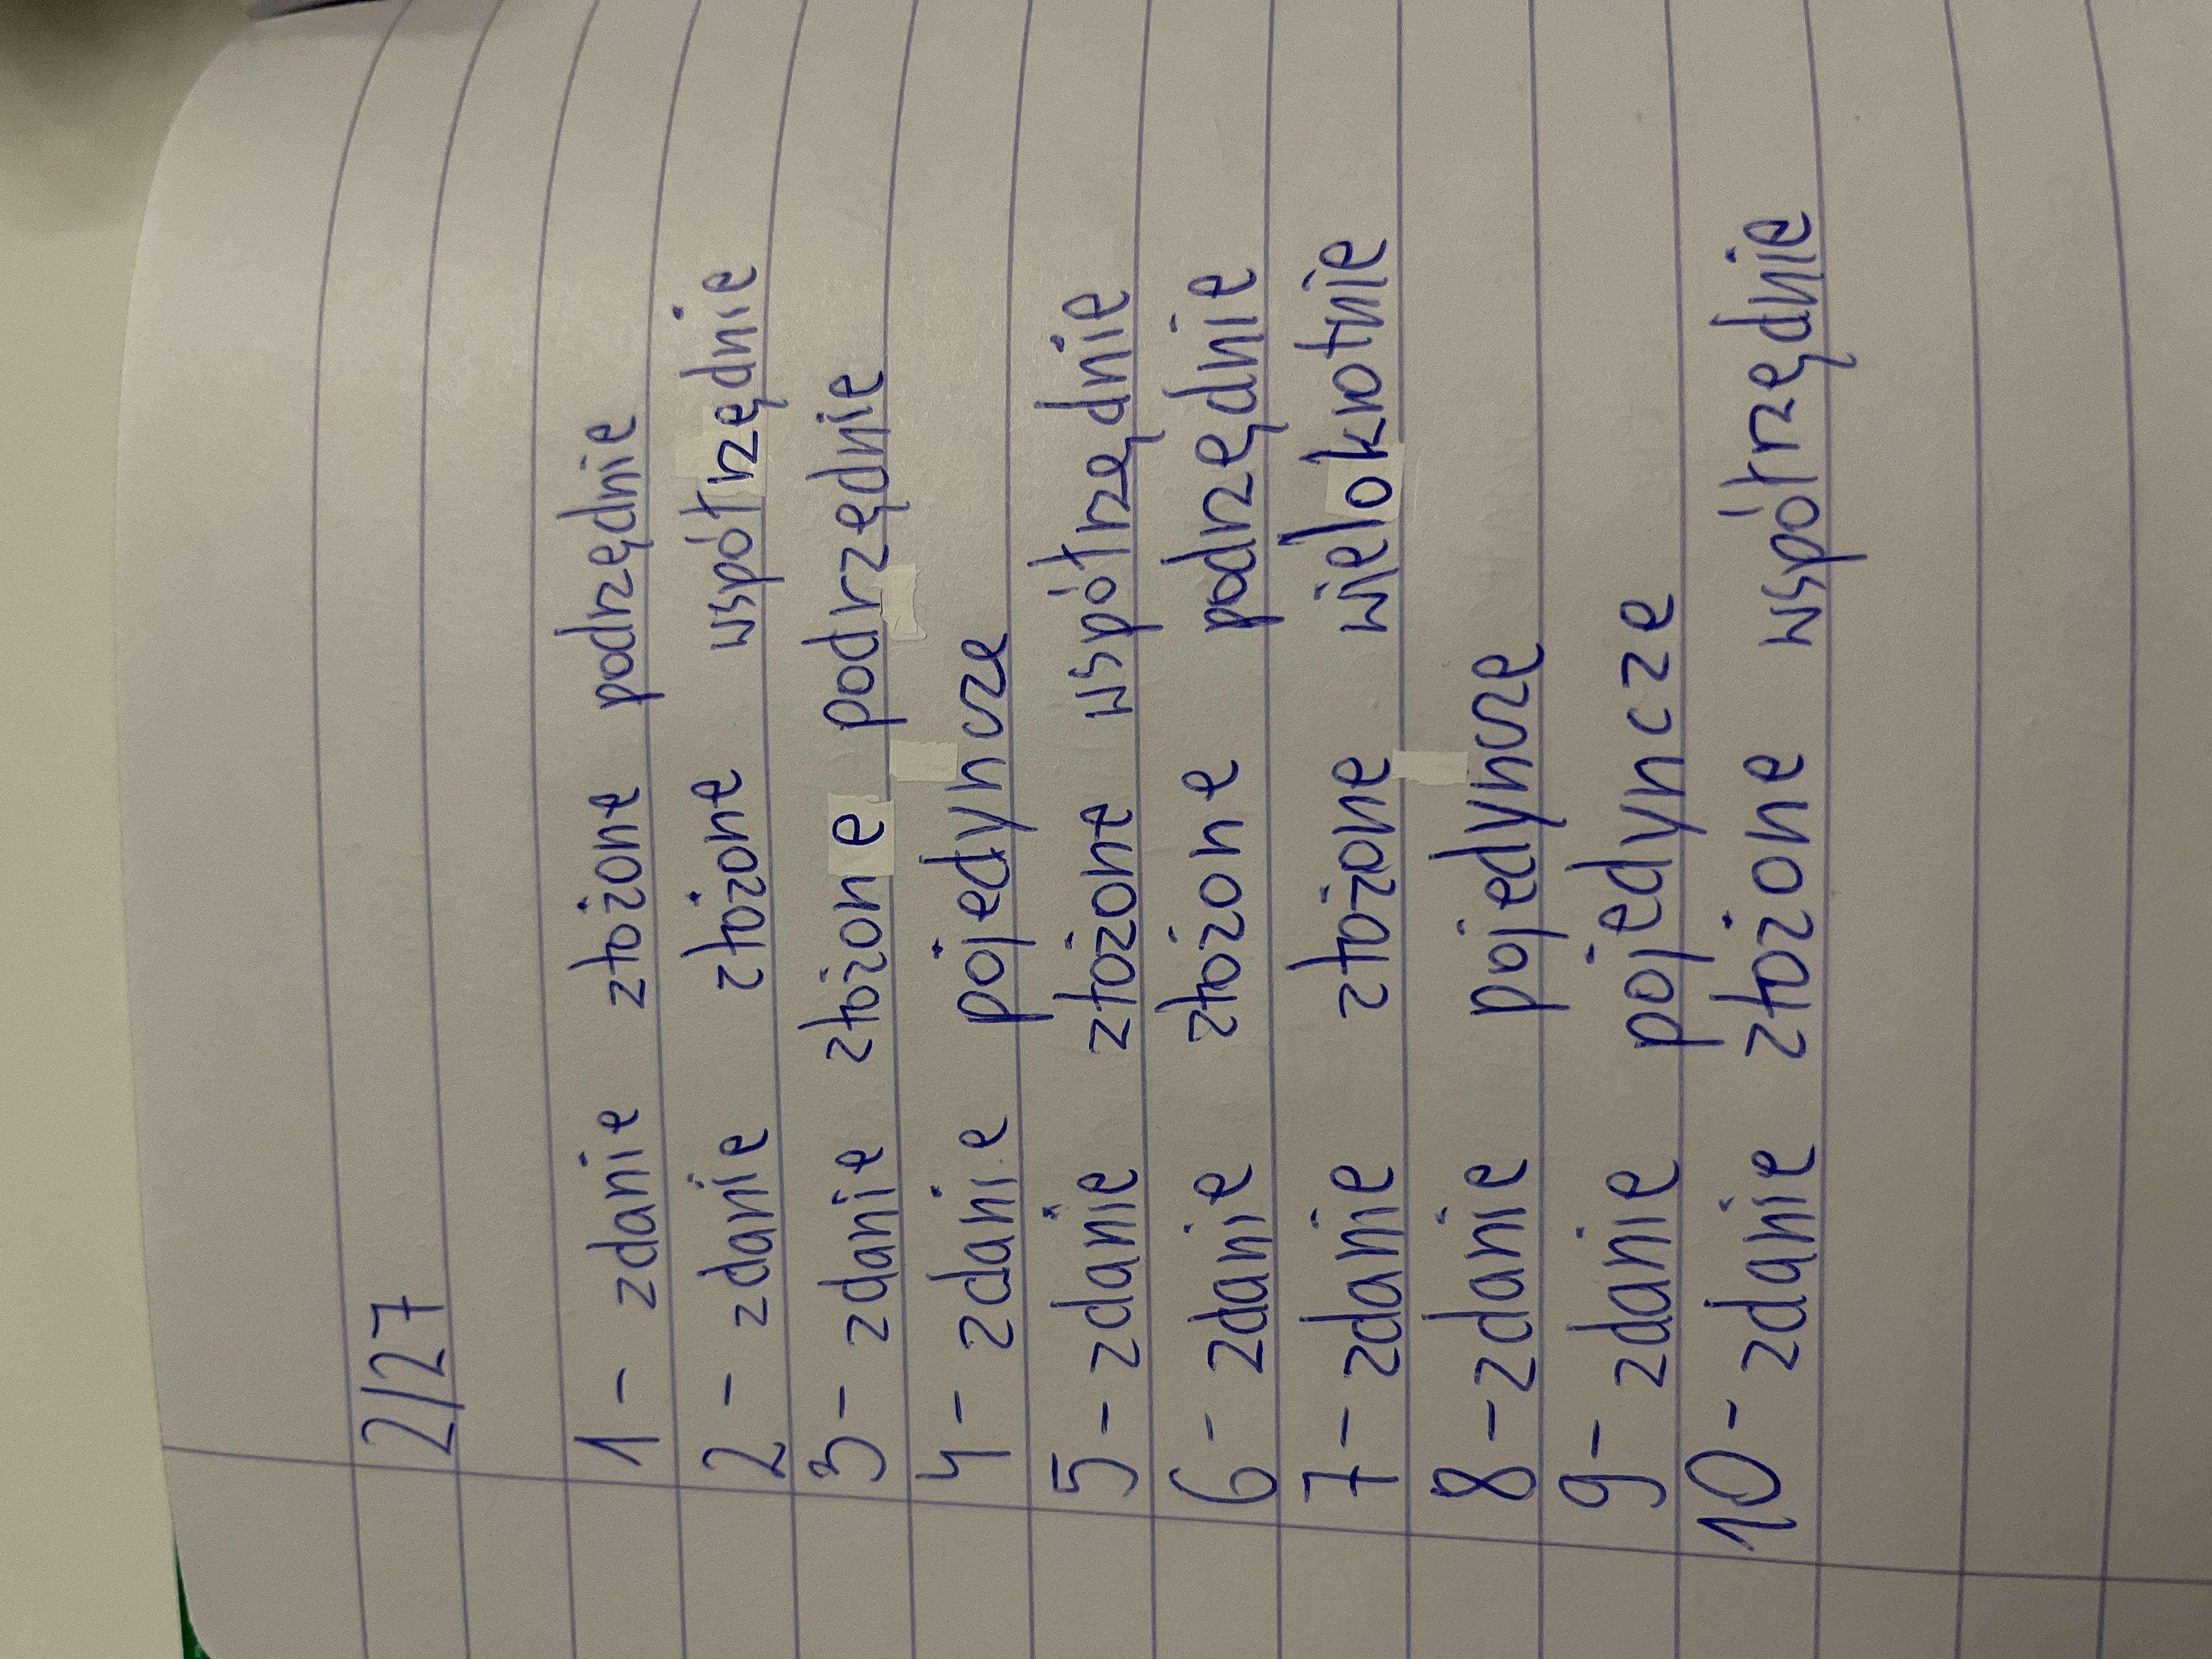 2/27
1 - zdanie złożone podrzędnie
2 - zdanie złożone współrzędnie
3 - zdanie złożone podrzędnie
4 - zdanie pojedyncze
5 - zdanie złożone współrzędnie
6 - zdanie złożone podrzędnie
7 - zdanie złożone wielokrotnie
8 - zdanie pojedyncze
9 - zdanie pojedyncze
10 - zdanie złożone współrzędnie